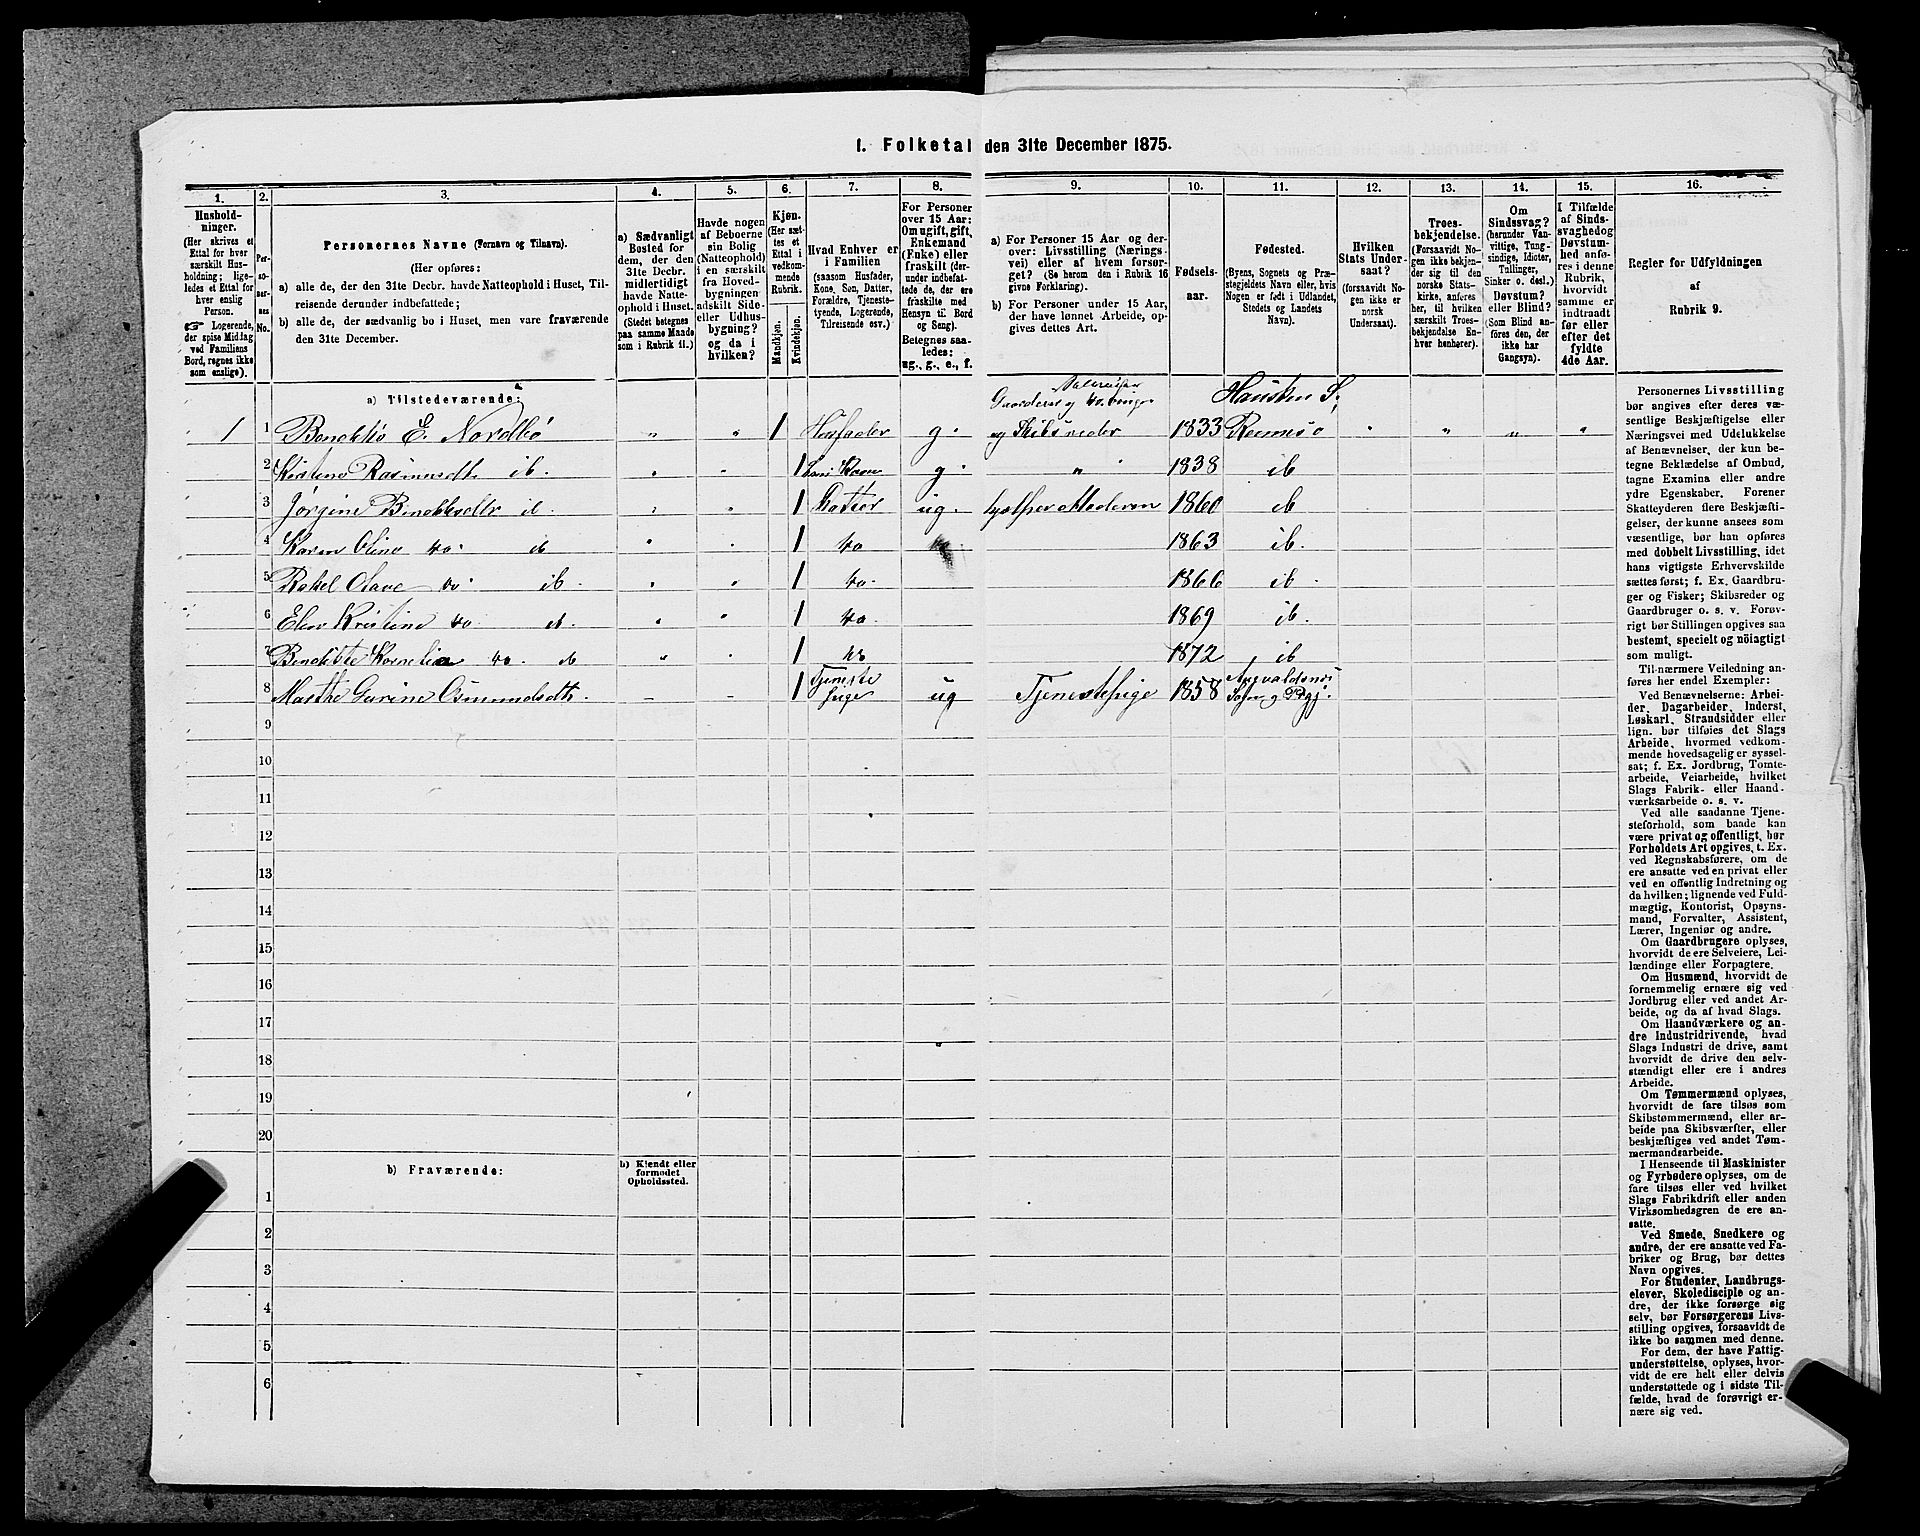 1. Folketal den 31te December 1875.
1.
2.
3.
4.
5.
6.
7.
8.
9.
10.
11.
12.
13.
14.
15.
16.
Hushold-
ninger.
(Her skrives et
Ettal for hver
særskilt Hus-
holdning; lige-
ledes et Ettal for
hver enslig
Person.
☞ Logerende,
der spise Middag
ved Familiens
Bord, regnes ikke
som enslige).
Per-
so-
ner-
nes
No.
Personernes Navne (Fornavn og Tilnavn).
(Her opføres:
a) alle de, der den 31te Decbr. havde Natteophold i Huset, Til-
reisende derunder indbefattede;
b) alle de, der sædvanlig bo i Huset, men vare fraværende
den 31te December.
a) Sædvanligt
Bosted for
dem, der den
31te Decbr.
midlertidigt
havde Natte-
ophold i Huset.
(Stedet betegnes
paa samme Maade
som i Rubrik 11.)
Havde nogen
af Beboerne
sin Bolig
(Natteophold)
i en særskilt
fra Hoved-
bygningen
adskilt Side-
eller Udhus-
bygning?
og da i
hvilken?
Kjøn.
(Her sæt-
tes et
Ettal i
vedkom-
mende
Rubrik.
Mandkjøn.
Kvindekjøn.
Hvad Enhver er
i Familien
(saasom Husfader,
Kone, Søn, Datter,
Forældre, Tjeneste-
tyende, Logerende,
Tilreisende osv.)
For Personer
over 15 Aar:
Om ugift, gift,
Enkemand
(Enke) eller
fraskilt (der-
under indbefat-
tede de, der ere
fraskilte med
Hensyn til Bord
og Seng).
Betegnes saa-
ledes:
ug., g., e., f.
a) For Personer 15 Aar og der-
over: Livsstilling (Nærings-
vei) eller af hvem forsør-
get? (Se herom den i Rubrik 16
givne Forklaring).
b) For Personer under 15 Aar,
der have lønnet Arbeide, op-
gives dettes Art.
Fødsels-
aar.
Fødested.
(Byens, Sognets og Præ-
stegjeldets Navn eller, hvis
Nogen er født i Udlandet,
Stedets og Landets
Navn).
Hvilken
Stats Under-
saat?
(forsaavidt No-
gen ikke er
norsk
Undersaat).
Troes-
bekjendelse.
(Forsaavidt No-
gen ikke bekjen-
der sig til den
norske Stats-
kirke, anføres
her, til hvilken
særskilt Troes-
bekjendelse En-
hver henhører).
Om
Sindssvag?
(herunder Van-
vittige, Tung-
sindige, Idioter,
Tullinger,
Sinker o. desl.)
Døvstum?
eller Blind?
(Som Blind an-
føres den, der
ikke har
Gangsyn).
I Tilfælde
af Sinds-
svaghed og
Døvstum-
hed anfø-
res i denne
Rubrik,
hvorvidt
samme er
indtraadt
før eller
efter det
fyldte
4de Aar.
Regler for Udfyldningen
af
Rubrik 9.
a) Tilstedeværende:
Gaardbruger Hausken S;
1 1 Benedikt E. Nordbø „ „ 1 Husfader g. og Skibsreder 1833 Rennesø „ „ „ „
2 Kirstine Rasmusdt. ib. „ „ 1 hans Kone g. „ „ 1838 ib
3 Jørgine Benediktsdtr ib. „ „ 1 Datter ug. hjælper Moderen 1860 ib
4 Karen Oline do. ib „ „ 1 do 1863 ib.
5 Rakel Olave do. ib. „ „ 1 do. 1866 ib.
6 Elen Kristine do ib. „ „ 1 do. 1869 ib.
7 Benedikte Kornelia do. ib „ „ 1 do 1872 ib
8 Marthe Gurine Osmundsdt. – – 1 Tjeneste
pige ug Tjenestepige 1858 Augvaldsnes
Sogn og Prgj.
9
10
11
12
13
14
15
16
17
18
19
20
b) Fraværende:
b) Kjendt eller
formodet
Opholdssted.
1
2
3
4
5
6
Personernes Livsstilling
bør angives efter deres væ-
sentlige Beskjæftigelse eller
Næringsvei med Udelukkelse
af Benævnelser, der kun be-
tegne Beklædelse af Ombud,
tagne Examina eller andre
ydre Egenskaber. Forener
Skatteyderen flere Beskjæfti-
gelser, der kunne ansees som
væsentlige, bør han opføres
med dobbelt Livsstilling, idet
hans vigtigste Erhvervskilde
sættes først; f. Ex. Gaardbru-
ger og Fisker; Skibsreder og
Gaardbruger o. s. v. Forøv-
rigt bør Stillingen opgives saa
bestemt, specielt og nöiagtigt
som muligt.
Til nærmere Veiledning an-
føres her endel Exempler:
Ved Benævnelserne: Arbei-
der, Dagarbeider, Inderst,
Løskarl, Strandsidder eller
lign. bør tilføies det Slags
Arbeide, hvormed vedkom-
mende hovedsagelig er syssel-
sat; f. Ex. Jordbrug, Tomte-
arbeide, Veiarbeide, hvilket
Slags Fabrik- eller Haand-
værksarbeide o. s. v.
Ved alle saadanne Tjene-
steforhold, som baade kan
være privat og offentligt, bør
Forholdets Art opgives, t. Ex.
ved Regnskabsførere, om de
ere ansatte ved en privat eller
ved en offentlig Indretning og
da hvilken; lignende ved Fuld-
mægtig, Kontorist, Opsyns-
mand, Forvalter, Assistent,
Lærer, Ingeniør og andre.
Om Gaardbrugere oplyses,
hvorvidt de ere Selveiere, Lei-
lændinge eller Forpagtere.
Om Husmænd, hvorvidt de
fornemmelig ernære sig ved
Jordbrug eller ved andet Ar-
beide, og da af hvad Slags.
Om Haandværkere og an-
dre Industridrivende, hvad
Slags Industri de drive, samt
hvorvidt de drive den selv-
stændigt eller ere i andres
Arbeide.
Om Tømmermænd oplyses,
hvorvidt de fare tilsøs som
Skibstømmermænd, eller ar-
beide paa Skibsværfter, eller
beskjæftiges ved andet Tøm-
mermandsarbeide.
I Henseende til Maskinister
og Fyrbødere oplyses, om de
fare tilsøs eller ved hvilket
Slags Fabrikdrift eller anden
Virksomhedsgren de ere an-
satte.
Ved Smede, Snedkere og
andre, der ere ansatte ved Fa-
briker og Brug, bør dettes
Navn opgives.
For Studenter, Landbrugs-
elever, Skoledisciple og an-
dre, der ikke forsørge sig
selv, bør Forsørgerens Livs-
stilling opgives, forsaavidt de
ikke bo sammen med denne.
For dem, der have Fattig-
understøttelse, oplyses, hvor-
vidt de ere helt eller delvis
understøttede og i sidste Til-
fælde, hvad de forøvrigt er-
nære sig ved.